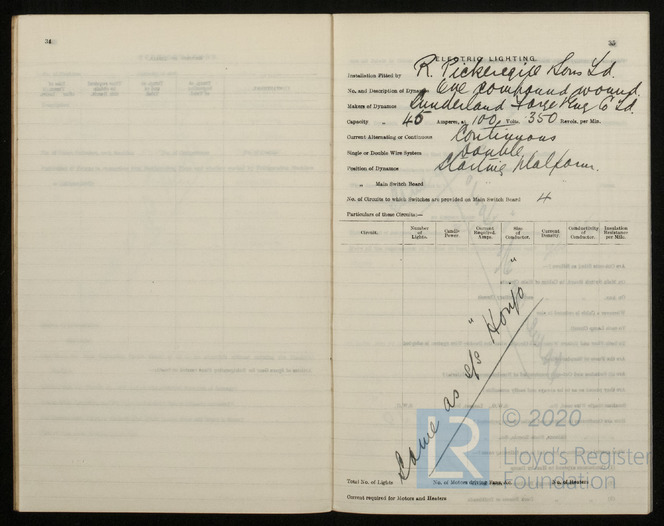 34
35
ELECTRIC LIGHTING.
Installation Fitted by R. Pickersgill & Sons Ld.
No. and Description of Dynamos One compound wound.
Makers of Dynamos Sunderland Forge Eng Co Ld.
Capacity „ 45 Amperes, at 100 Volts, 350 Revols. per Min.
Current Alternating or Continuous Continuous
Single or Double Wire System Double
Position of Dynamos Starting Platform.
„ Main Switch Board
No. of Circuits to which Switches are provided on Main Switch Board 4
Particulars of these Circuits:—
Circuit. Number of Lights. Candle Power. Current Required. Amps. Size of Conductor. Current Density. Conductivity of Conductor. Insulation Resistance per Mile.
Same as s/s "Houfo"
Total No. of Lights No. of Motors driving Fans, &c. No. of Heaters
Current required for Motors and Heaters
LR © 2020
Lloyd's Register
Foundation